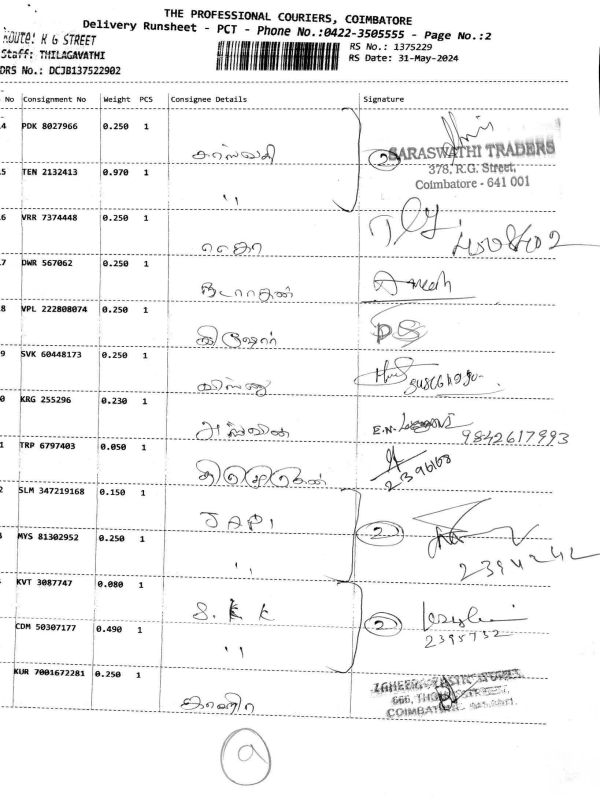 THE PROFESSIONAL COURIERS, COIMBATORE
Delivery Runsheet - PCT - Phone No.:0422-3505555 - Page No.:2
Route: R G STREET
Staff: THILAGAVATHI
DRS No.: DCJB137522902
RS No.: 1375229
RS Date: 31-May-2024
No Consignment No Weight PCS Consignee Details Signature
4 PDK 8027966 0.250 1
சரஸ்வதி
2 SARASWATHI TRADERS
378, R.G. Street,
Coimbatore - 641 001
5 TEN 2132413 0.970 1
"
6 VRR 7374448 0.250 1
7 DWR 567062 0.250 1
8 VPL 222808074 0.250 1
கிஷோர்
9 SVK 60448173 0.250 1
0 KRG 255296 0.230 1
அஸ்வின்
E.N. 9842617993
1 TRP 6797403 0.050 1
2396168
2 SLM 347219168 0.150 1
JAPI
2
2394242
MYS 81302952 0.250 1
"
KVT 3087747 0.080 1
S. K K
2
2395732
CDM 50307177 0.490 1
"
KUR 7001672281 0.250 1
666, COIMBATORE
a